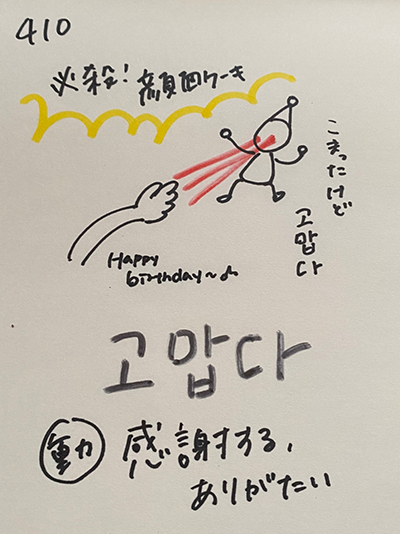 410
必殺!顔面ケーキ
こまったけど
고맙다
Happy
birthday~♪
고맙다
動 感謝する、
ありがたい